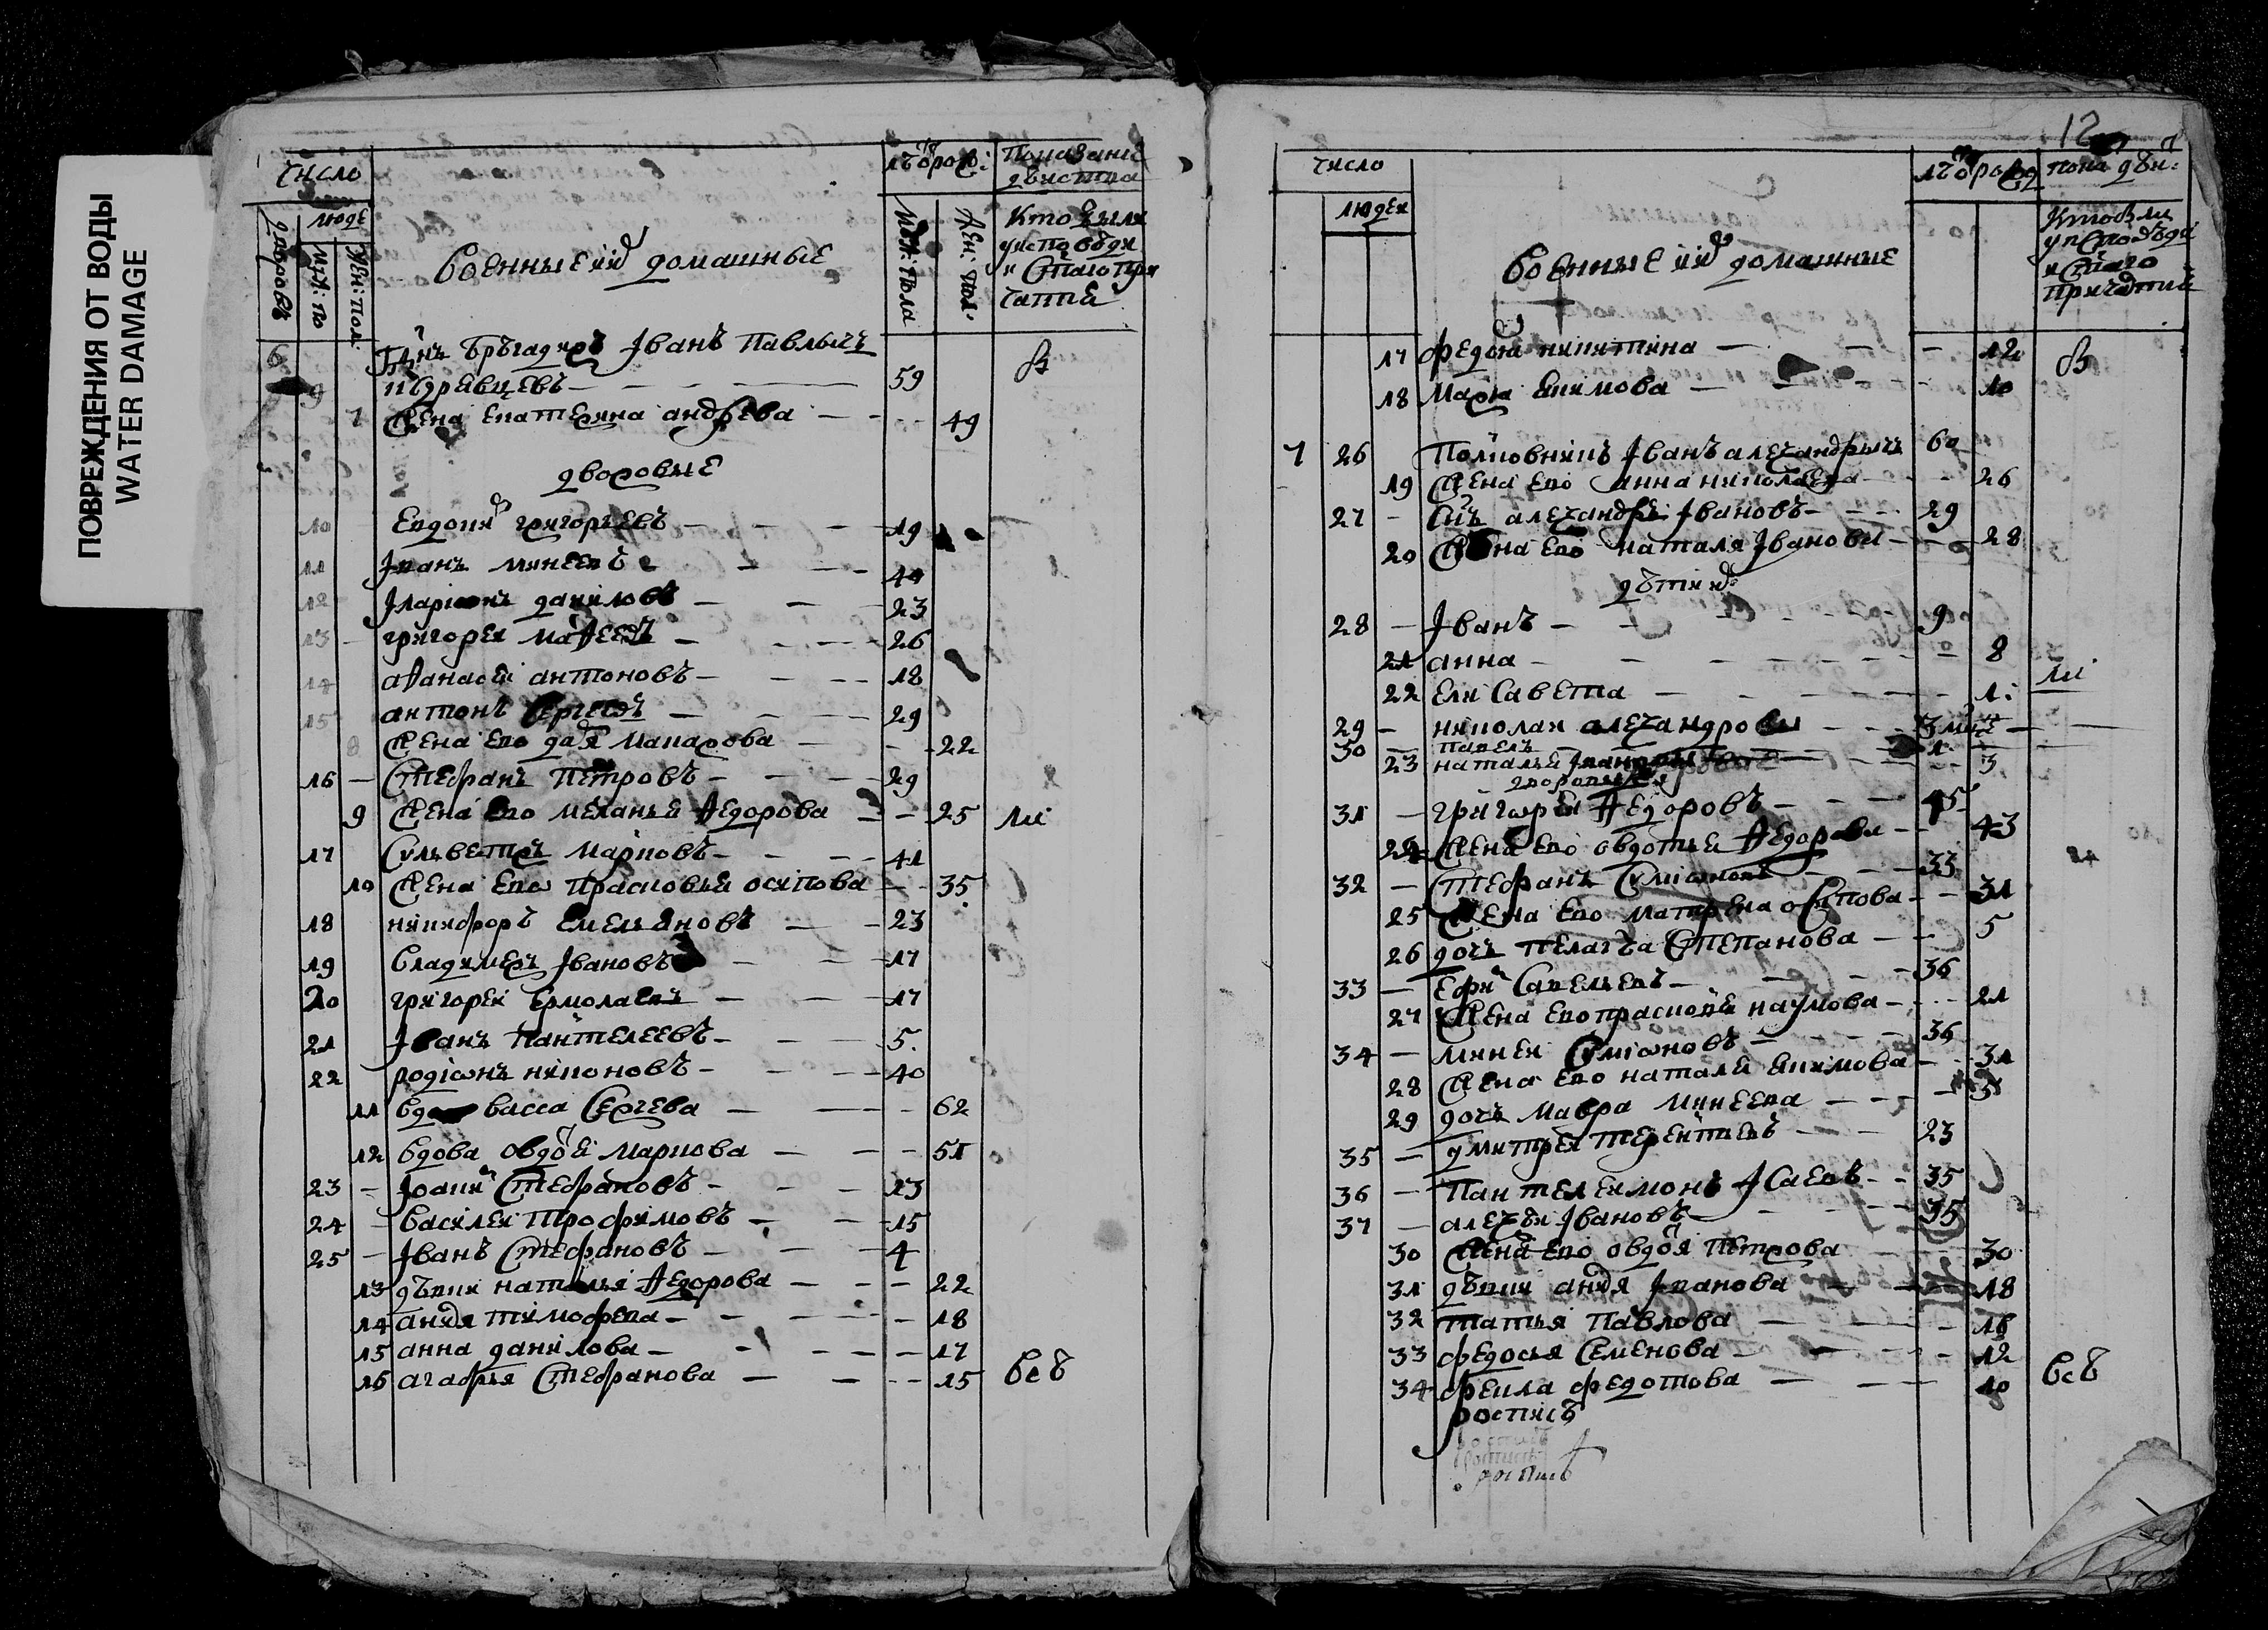 ПОВРЕЖДЕНИЯ ОТ ВОДЫ
WATER DAMAGE
число
людеи
дворовъ
муж: по
жен: пол:
военные и их домашные
лѣт от рож:
муж: пола
жен: пол.
показание
действа
кто были
у исповѣди
и стаго при
частия
6 9 Гднъ бригадиръ Іванъ Павлычь
кѣдрявцевъ 59
7 жена екатерина андрѣева 49
в
дворовые
10 евдоким григорьевъ 19
11 Іванъ минеевъ 40
12 Іларіѡнъ даниловъ 23
13 григореи маѳеевъ 26
14 аѳанасеи антоновъ 18
15 антонъ сергеевъ 29
8 жена его дарья макарова 22
16 Стефанъ Петровъ 29
9 жена его меланья ѳедорова 25
ли
17 Сильвестръ марковъ 41
10 жена его прасковья осипова 35
18 никифоръ емельяновъ 23
19 владимеръ Івановъ 17
20 григореи ермолаевъ 17
21 Іванъ пантелеевъ 5
22 родіѡнъ никоновъ 40
11 вдова васса Сергева 62
12 вдова овдотя маркова 51
23 Іоаким Стефановъ 13
24 василеи трофимовъ 15
25 Іванъ Стефановъ 4
13 дѣвки наталья ѳедорова 22
14 анися тимофева 18
15 анна данилова 17
16 агафья Стефанова 15
всѣ
12
число
людеи
военные и их домашные
лѣт от рожд
пока дѣи:
кто были
у исповѣди
и стаго
причастия
17 федося никитина 12
в
18 марѳа екимова 10
7 26 Полковникъ Іванъ алеѯандрычь 60
19 жена его анна николаева 26
27 сынъ алеѯандръ Івановъ 29
20 жена его наталя Іванова 28
дѣти их
28 Іванъ 9
21 анна 8
22 елисавета 1
ли
29 николаи алеѯандровы
30 павелъ 1
23 наталья Іванова 3
дворовые
31 григореи ѳедоровъ 45
24 жена его овдотья ѳедорова 43
32 Стефанъ Симіоновъ 33
25 жена его матрена осипова 31
26 дочь пелагѣа Степанова 5
33 ефим Савельевъ 36
27 жена его прасковя наумова 21
34 минеи Симіоновъ 36
28 жена его наталя екимова 31
29 дочь мавра минеева
35 дмитреи терентьевъ 23
36 Пантелеимонъ Ісаевъ 35
37 алеѯѣи Івановъ 35
30 жена его овдотя Петрова 30
31 дѣвки анися Іванова 18
32 татья Павлова 16
33 федосья Семенова 12
34 фекла федотова 10
всѣ
роспись
роспись
роспись
роспись